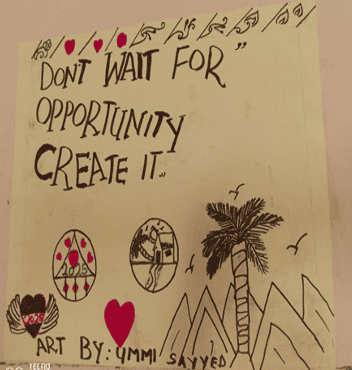 DON'T WAIT FOR "
OPPORTUNITY
CREATE IT"
2025
2025
ART BY: UMMI SAYYED
TECNO